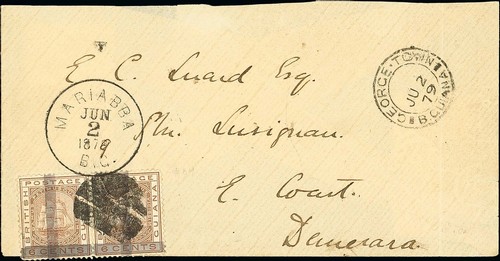 E. C. Luard Esq.
Pln. Lusignan
E. Coast.
Demerara
MARIABBA
JUN
2
1879
B.G.
GEORGE-TOWN B.GUIANA
JU 2
79
BRITISH
POSTAGE
GUIANA
6 CENTS
BRITISH
POSTAGE
GUIANA
6 CENTS